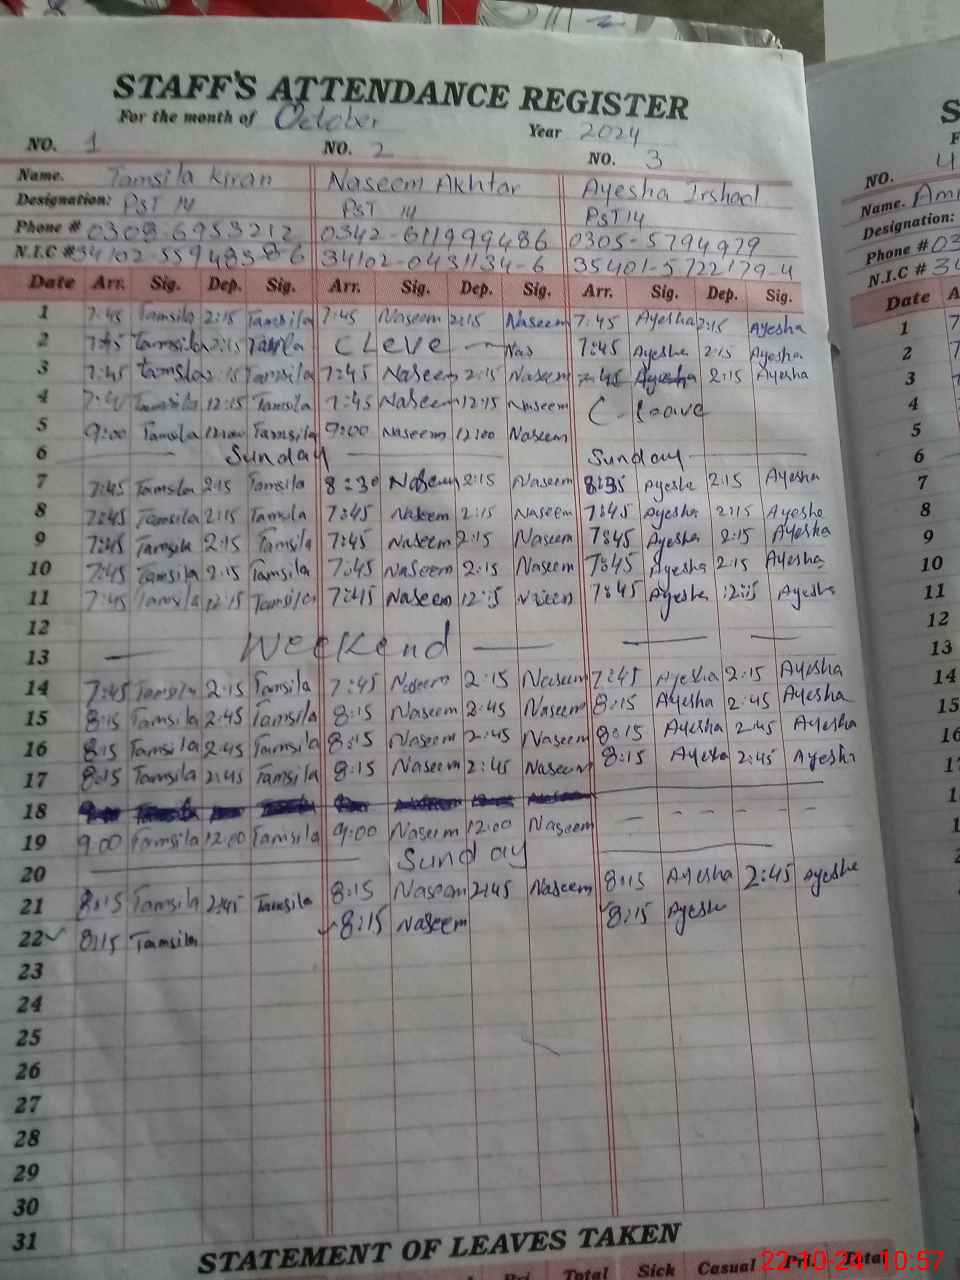 STAFF'S ATTENDANCE REGISTER
For the month of October Year 2024
NO. 1 NO. 2 NO. 3
Name. Tamsila Kiran Naseem Akhtar Ayesha Irshad
Designation: PST 14 PST 14 PST 14
Phone # 0308-6953212 0342-611999486 0305-5794979
N.I.C # 34102-0431134-6 35401-5722179-4
Date Arr. Sig. Dep. Sig. Arr. Sig. Dep. Sig. Arr. Sig. Dep. Sig.
1 7:45 Tamsila 2:15 Tamsila 7:45 Naseem 2:15 Naseem 7:45 Ayesha 2:15 Ayesha
2 7:45 Tamsila 2:15 Tamsila C Leve Nas 7:45 Ayeshe 2:15 Ayesha
3 7:45 Tamsila 2:15 Tamsila 7:45 Naseem 2:15 Naseem 7:45 Ayesha 2:15 Ayesha
4 Tamsila 12:15 Tamsila 7:45 Naseem 12:15 Naseem C-leave
5 9:00 Tamsila 12:00 Tamsila 9:00 Naseem 12:00 Naseem
6 Sunday Sunday
7 7:45 Tamsila 2:15 Tamsila 8:30 Naseem 2:15 Naseem 8:35 Ayeshe 2:15 Ayesha
8 7:45 Tamsila 2:15 Tamsila 7:45 Naseem 2:15 Naseem 7:45 Ayesha 2:15 Ayeshe
9 7:45 Tamsila 2:15 Tamsila 7:45 Naseem 2:15 Naseem 7:45 Ayesha 2:15 Ayesha
10 7:45 Tamsila 2:15 Tamsila 7:45 Naseem 2:15 Naseem 7:45 Ayesha 2:15 Ayesha
11 7:45 Tamsila 12:15 Tamsila 7:45 Naseem 12:15 Naseem 7:45 Ayesha 12:15 Ayesha
12
13 Weekend
14 7:45 Tamsila 2:15 Tamsila 7:45 Naseem 2:15 Naseem 7:45 Ayesha 2:15 Ayesha
15 8:15 Tamsila 2:45 Tamsila 8:15 Naseem 2:45 Naseem 8:15 Ayesha 2:45 Ayesha
16 8:15 Tamsila 2:45 Tamsila 8:15 Naseem 2:45 Naseem 8:15 Ayesha 2:45 Ayesha
17 8:15 Tamsila 2:45 Tamsila 8:15 Naseem 2:45 Naseem 8:15 Ayesha 2:45 Ayesha
18
19 9:00 Tamsila 12:00 Tamsila 9:00 Naseem 12:00 Naseem
20 Sunday
21 8:15 Tamsila 2:45 Tamsila 8:15 Naseem 2:45 Naseem 8:15 Ayesha 2:45 Ayeshe
22 8:15 Tamsila 8:15 Naseem 8:15 Ayesh
23
24
25
26
27
28
29
30
31
STATEMENT OF LEAVES TAKEN
Total Sick Casual Pri. Total
NO. 4
Name.
Designation:
Phone # 03
N.I.C #
Date
1
2
3
4
5
6
7
8
9
10
11
12
13
14
15
16
22-10-24 10:57